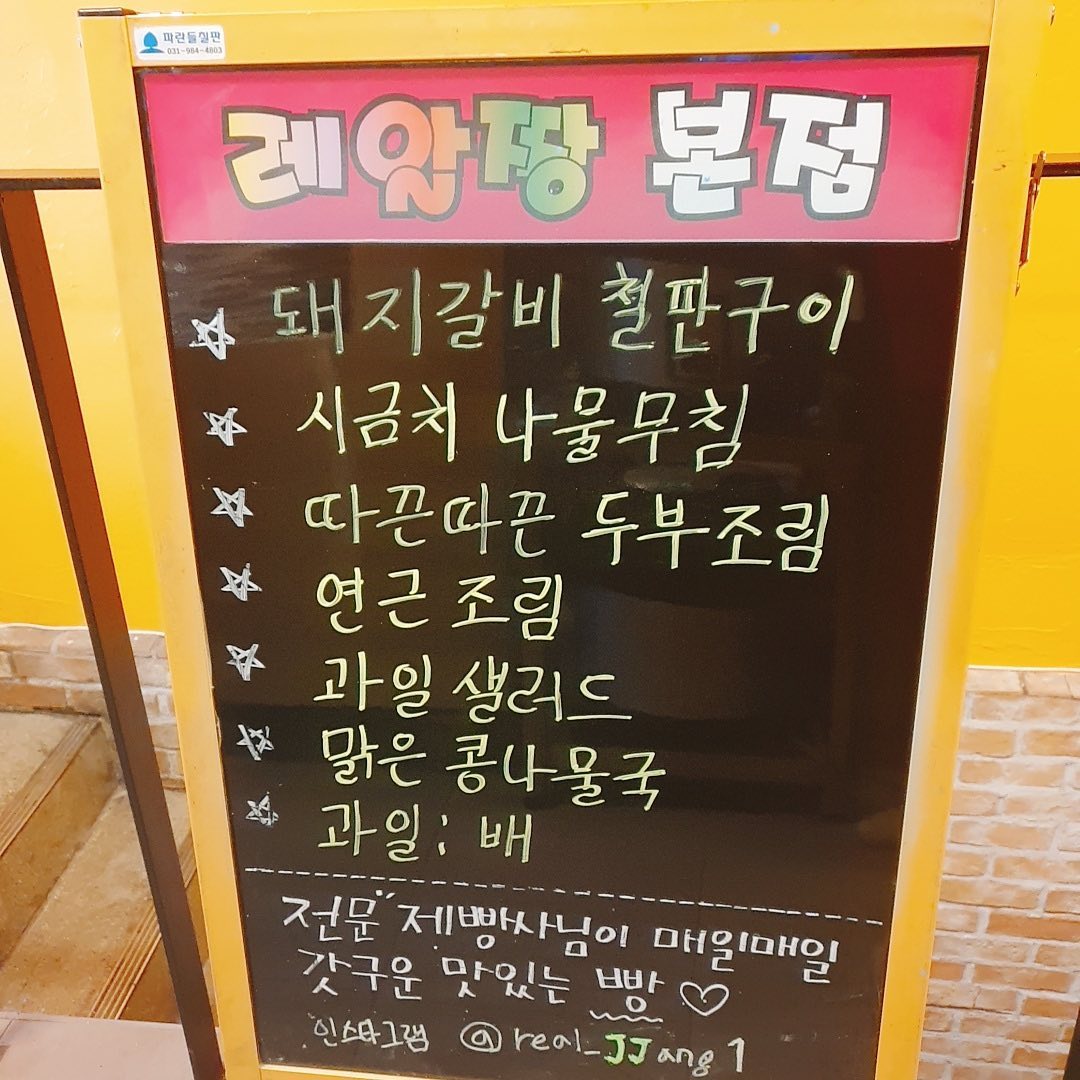 파란들칠판
031-984-4803
레알짱 본점
☆ 돼지갈비 철판구이
☆ 시금치 나물무침
☆ 따끈따끈 두부조림
☆ 연근 조림
☆ 과일 샐러드
☆ 맑은 콩나물국
☆ 과일: 배
전문 제빵사님이 매일매일
갓구운 맛있는 빵 ♡
인스타그램 @real_JJang1